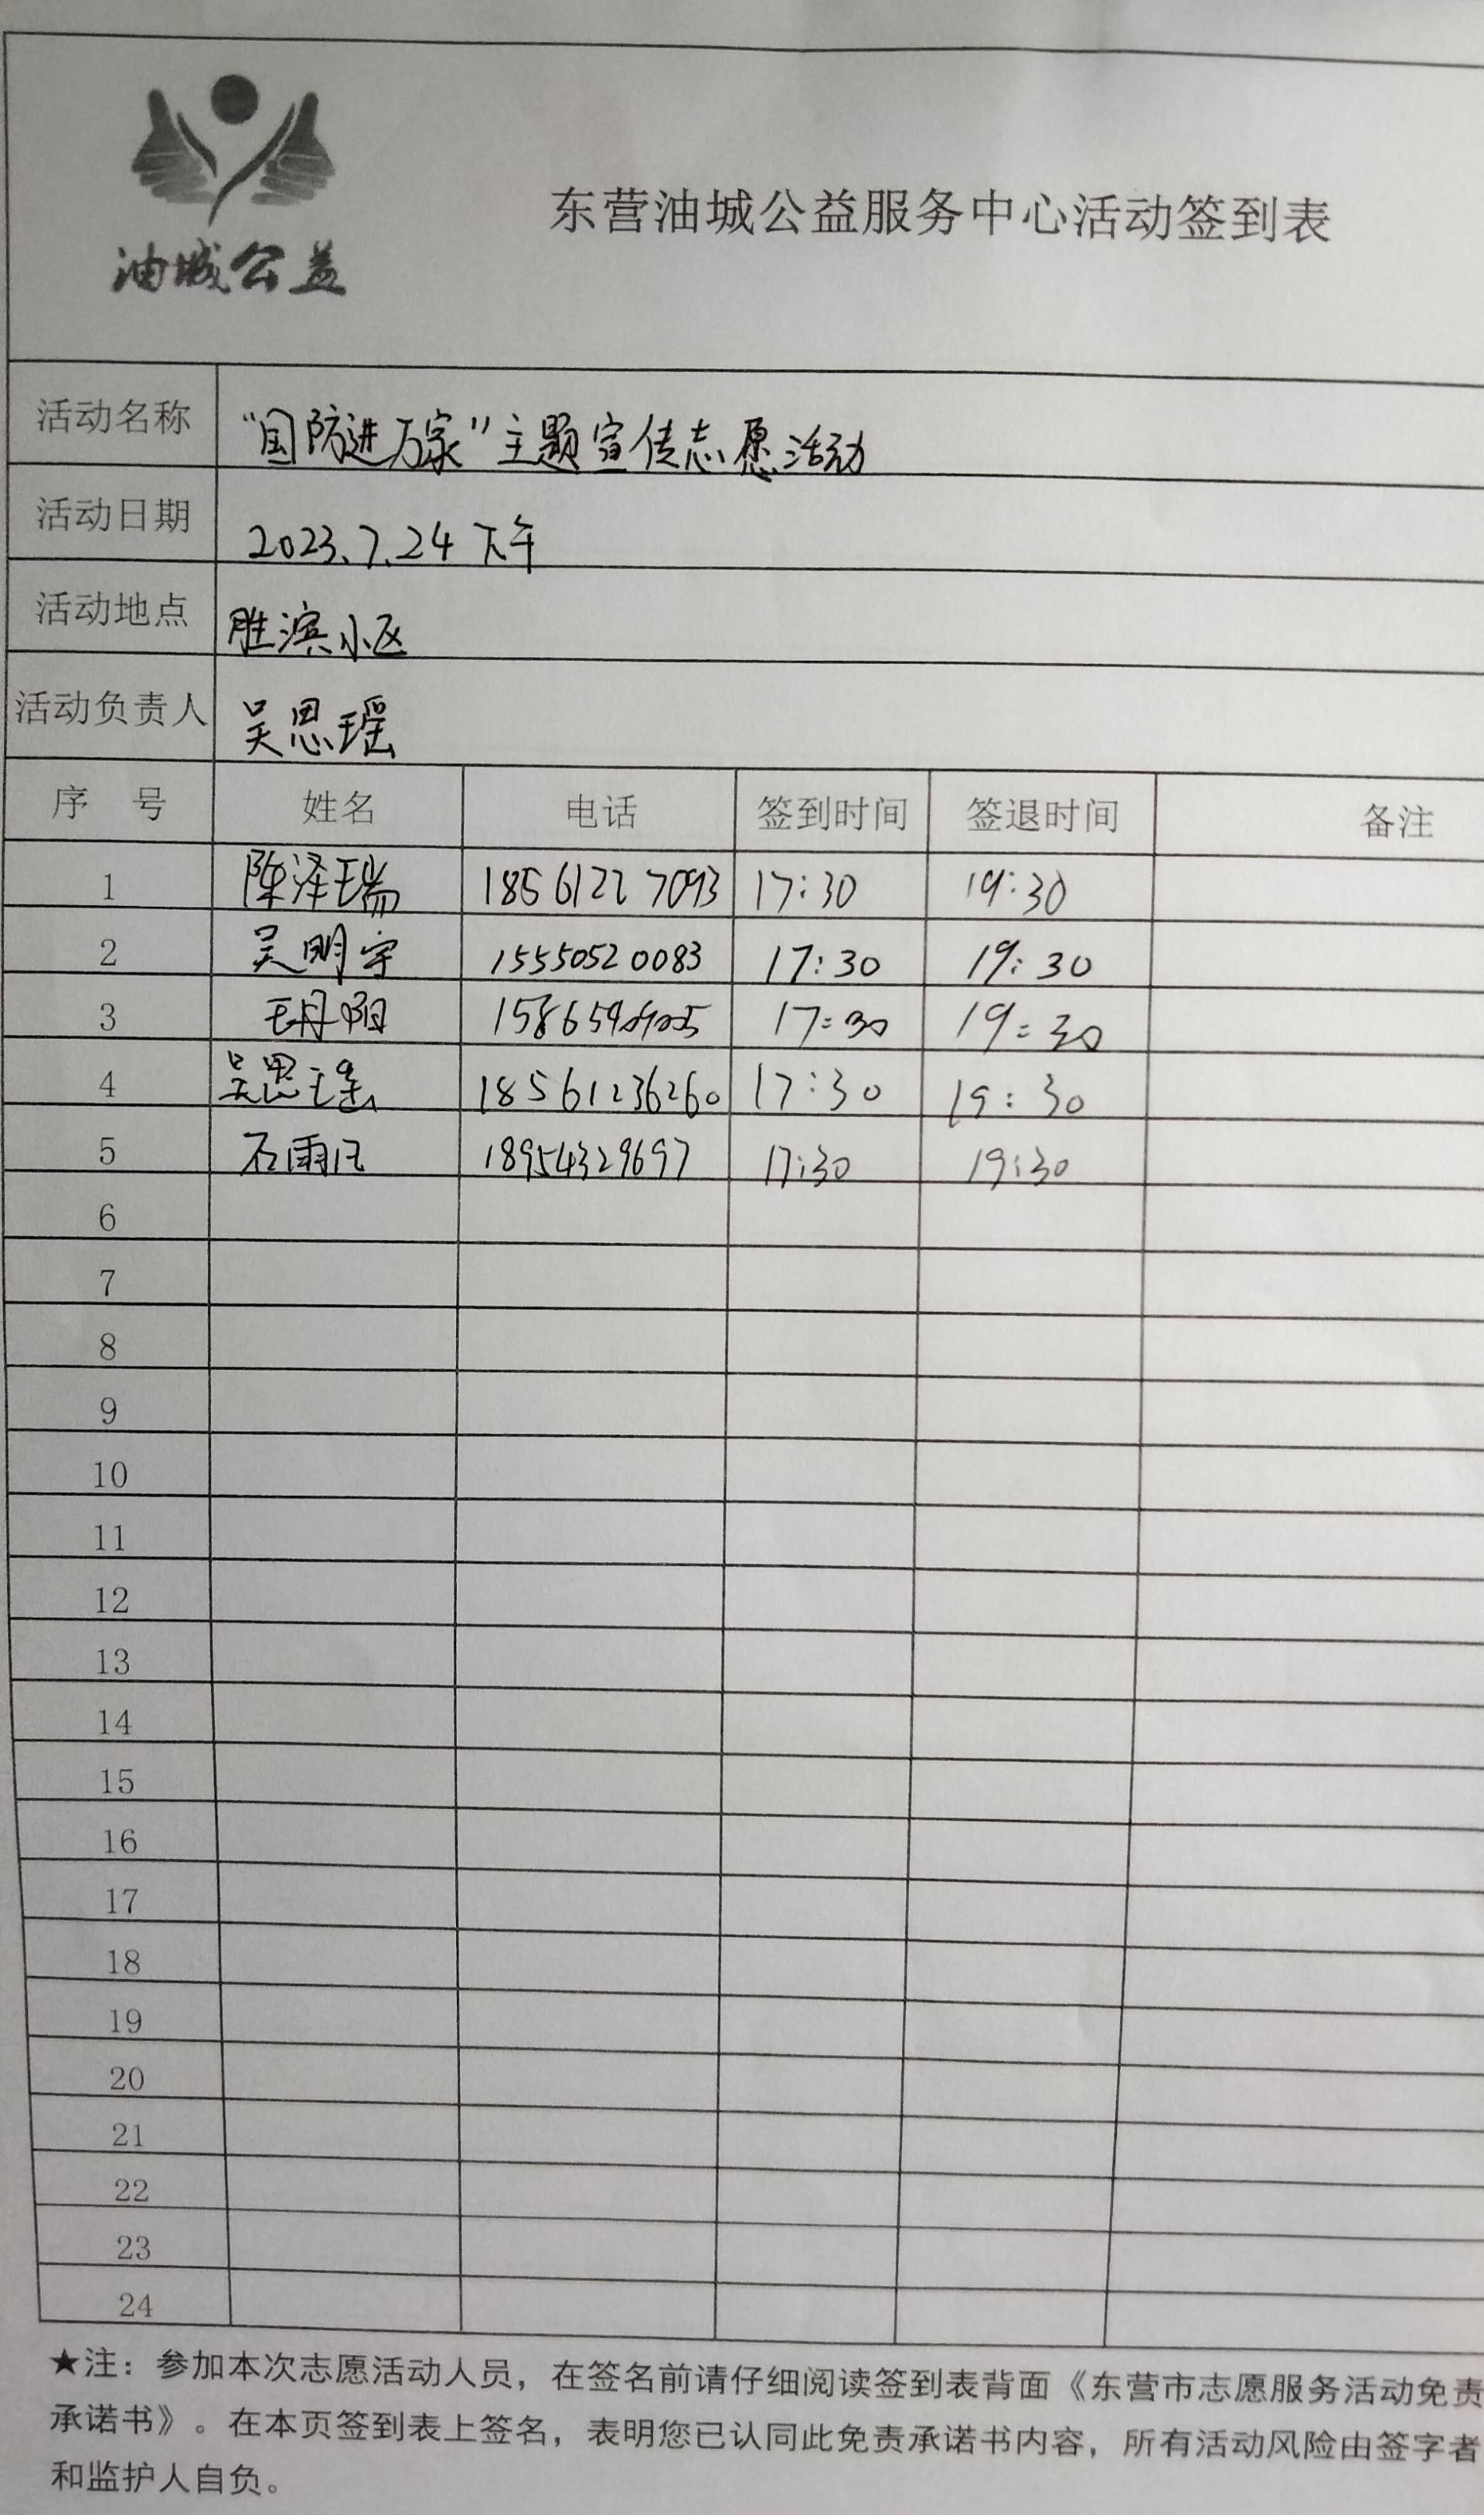 油城公益
东营油城公益服务中心活动签到表
活动名称 “国防进万家”主题宣传志愿活动
活动日期 2023.7.24 下午
活动地点 胜滨小区
活动负责人 吴思瑶
序 号 姓名 电话 签到时间 签退时间 备注
1 陈泽瑞 18561227093 17:30 19:30
2 吴明宇 15550520083 17:30 19:30
3 王丹阳 17:30 19:30
4 吴思瑶 18561236260 17:30 19:30
5 18954329697 17:30 19:30
6
7
8
9
10
11
12
13
14
15
16
17
18
19
20
21
22
23
24
★注：参加本次志愿活动人员，在签名前请仔细阅读签到表背面《东营市志愿服务活动免责
承诺书》。在本页签到表上签名，表明您已认同此免责承诺书内容，所有活动风险由签字者
和监护人自负。